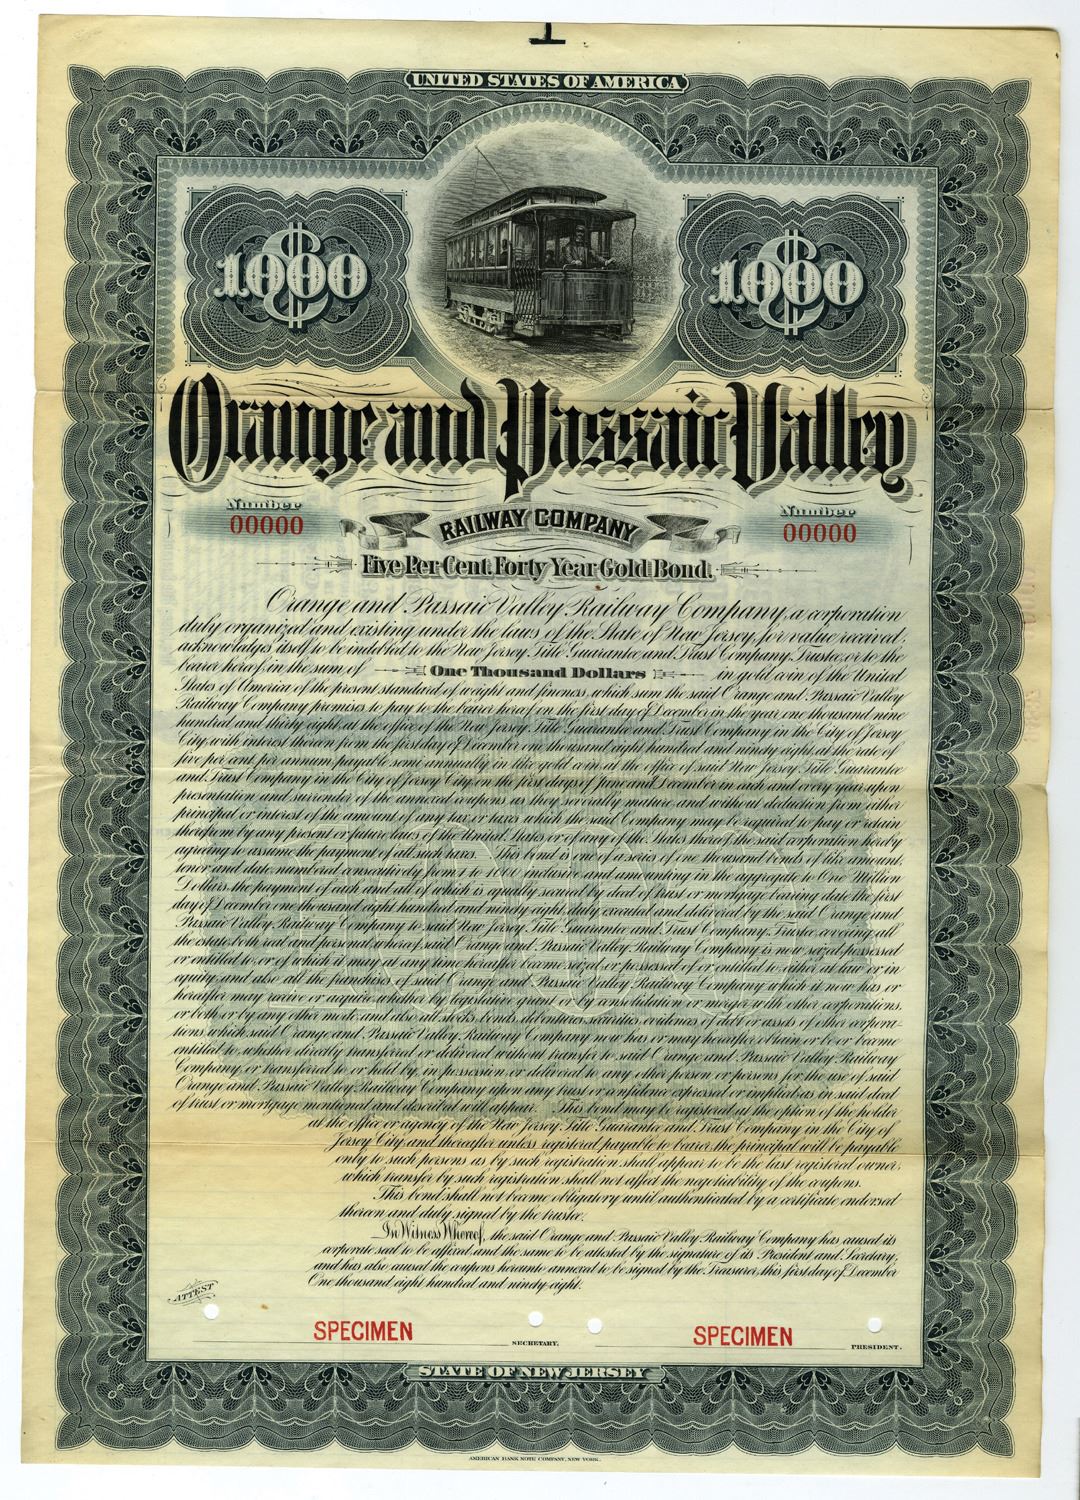 UNITED STATES OF AMERICA
1000 $ 1000 $
Orange and Passaic Valley
Number Number
00000 00000
RAILWAY COMPANY
Five Per Cent. Forty Year Gold Bond.
Orange and Passaic Valley Railway Company, a corporation
duly organized and existing under the laws of the State of New Jersey, for value received,
acknowledges itself to be indebted to the New Jersey Title Guarantee and Trust Company, Trustee, or to the
bearer hereof, in the sum of One Thousand Dollars in gold coin of the United
States of America of the present standard of weight and fineness, which sum the said Orange and Passaic Valley
Railway Company promises to pay to the bearer hereof on the first day of December in the year one thousand nine
hundred and thirty eight, at the office of the New Jersey Title Guarantee and Trust Company in the City of Jersey
City, with interest thereon from the first day of December one thousand eight hundred and ninety eight, at the rate of
five per cent per annum, payable semi annually in like gold coin at the office of said New Jersey Title Guarantee
and Trust Company in the City of Jersey City, on the first days of June and December in each and every year upon
presentation and surrender of the annexed coupons as they severally mature, and without deduction from either
principal or interest of the amount of any tax or taxes which the said Company may be required to pay or retain
therefrom by any present or future laws of the United States or of any of the States thereof, the said corporation hereby
agreeing to assume the payment of all such taxes. This bond is one of a series of one thousand bonds of like amount,
tenor and date, numbered consecutively from 1 to 1000 inclusive, and amounting in the aggregate to One Million
Dollars, the payment of each and all of which is equally secured by deed of trust or mortgage bearing date the first
day of December one thousand eight hundred and ninety eight, duly executed and delivered by the said Orange and
Passaic Valley Railway Company to said New Jersey Title Guarantee and Trust Company, Trustee, covering all
the estate, both real and personal, whereof said Orange and Passaic Valley Railway Company is now seized, possessed
or entitled to, or of which it may at any time hereafter become seized or possessed of or entitled to, either at law or in
equity, and also all the franchises of said Orange and Passaic Valley Railway Company which it now has or
hereafter may receive or acquire, whether by legislative grant or by consolidation or merger with other corporations,
or both or by any other mode, and also all stocks, bonds, debentures, securities, evidences of debt or assets of other corpora-
tions, which said Orange and Passaic Valley Railway Company now has or may hereafter obtain or be or become
entitled to, whether directly transferred or delivered without transfer to said Orange and Passaic Valley Railway
Company, or transferred to or held by, in possession or delivered to any other person or persons for the use of said
Orange and Passaic Valley Railway Company upon any trust or confidence expressed or implied, as in said deed
of trust or mortgage mentioned and described will appear. This bond may be registered at the option of the holder
at the office or agency of the New Jersey Title Guarantee and Trust Company in the City of
Jersey City, and thereafter unless registered payable to bearer, the principal will be payable
only to such persons as by such registration shall appear to be the last registered owner,
which transfer by such registration shall not affect the negotiability of the coupons.
This bond shall not become obligatory until authenticated by a certificate endorsed
thereon and duly signed by the trustee.
In Witness Whereof, the said Orange and Passaic Valley Railway Company has caused its
corporate seal to be affixed, and the same to be attested by the signature of its President and Secretary,
and has also caused the coupons hereunto annexed to be signed by the Treasurer, this first day of December
One thousand eight hundred and ninety eight.
ATTEST
SPECIMEN SECRETARY. SPECIMEN PRESIDENT.
STATE OF NEW JERSEY
AMERICAN BANK NOTE COMPANY, NEW YORK.